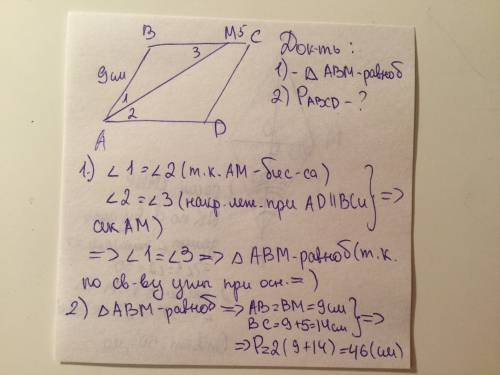 B M 5 C
3
9см
1
2
A D
Док-ть:
1) - △ ABM - равноб
2) PABCD - ?
1.) ∠1 = ∠2 (т.к. AM - бис-са)
∠2 = ∠3 (накр. леж. при AD || BC и
сек AM) } =>
=> ∠1 = ∠3 => △ ABM - равноб (т.к.
по св-ву углы при осн. =)
2) △ ABM - равноб => AB = BM = 9 см
BC = 9 + 5 = 14 см } =>
=> P = 2(9 + 14) = 46 (см)